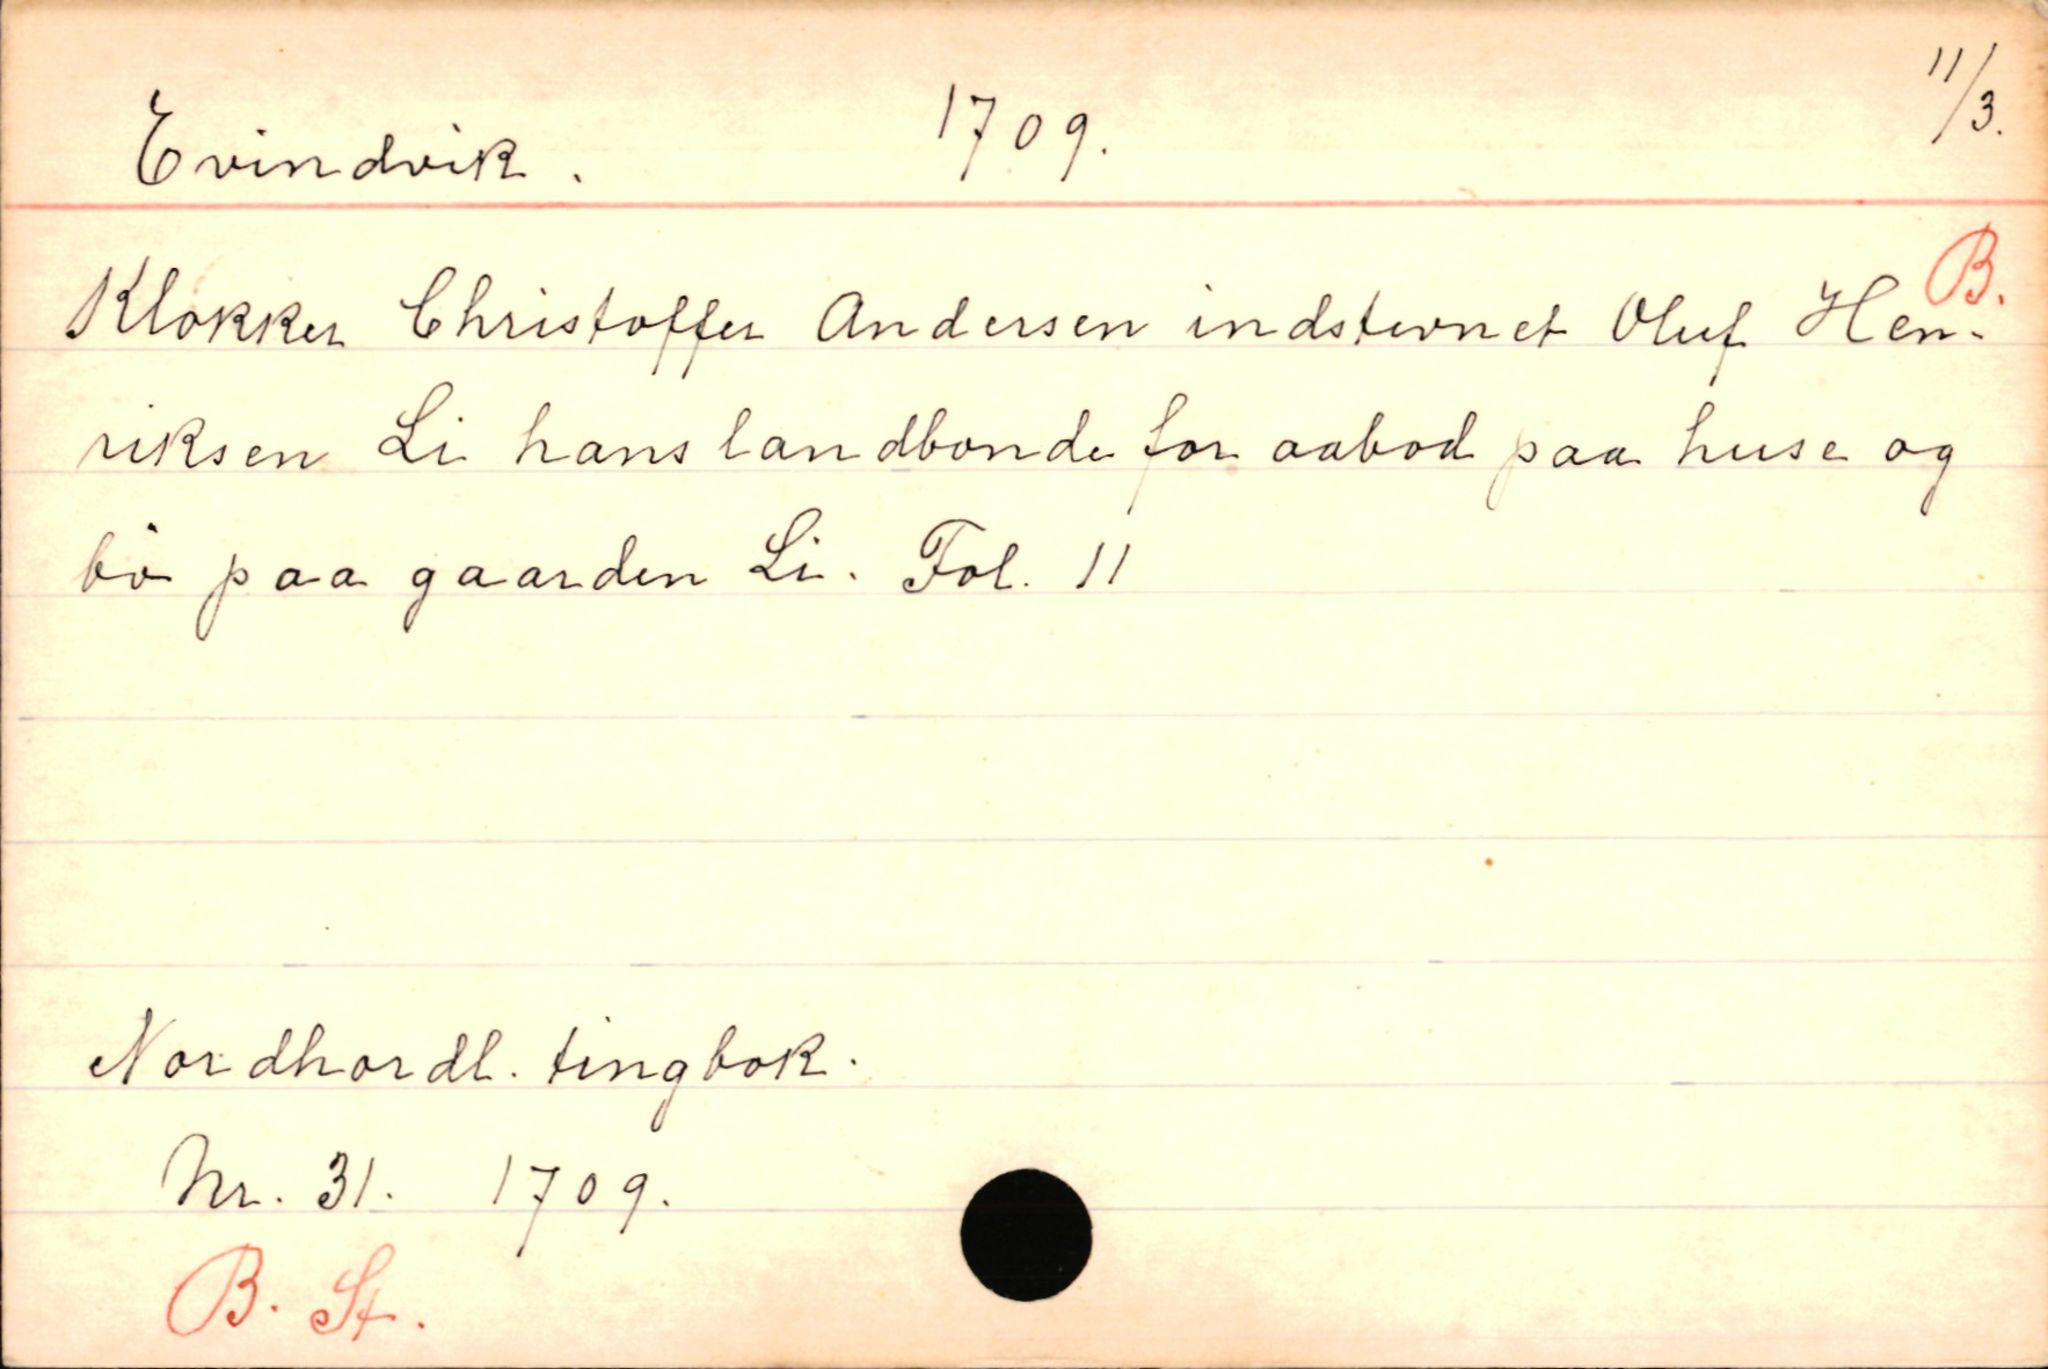 Evindvik. 1709. 11/3.
B.
Klokker Christoffer Andersen indstevnet Oluf Hen-
riksen Li hans landbonde for aabod paa huse og
bö paa gaarden Li. Fol. 11
Nordhordl. tingbok.
Nr. 31. 1709.
B. St.